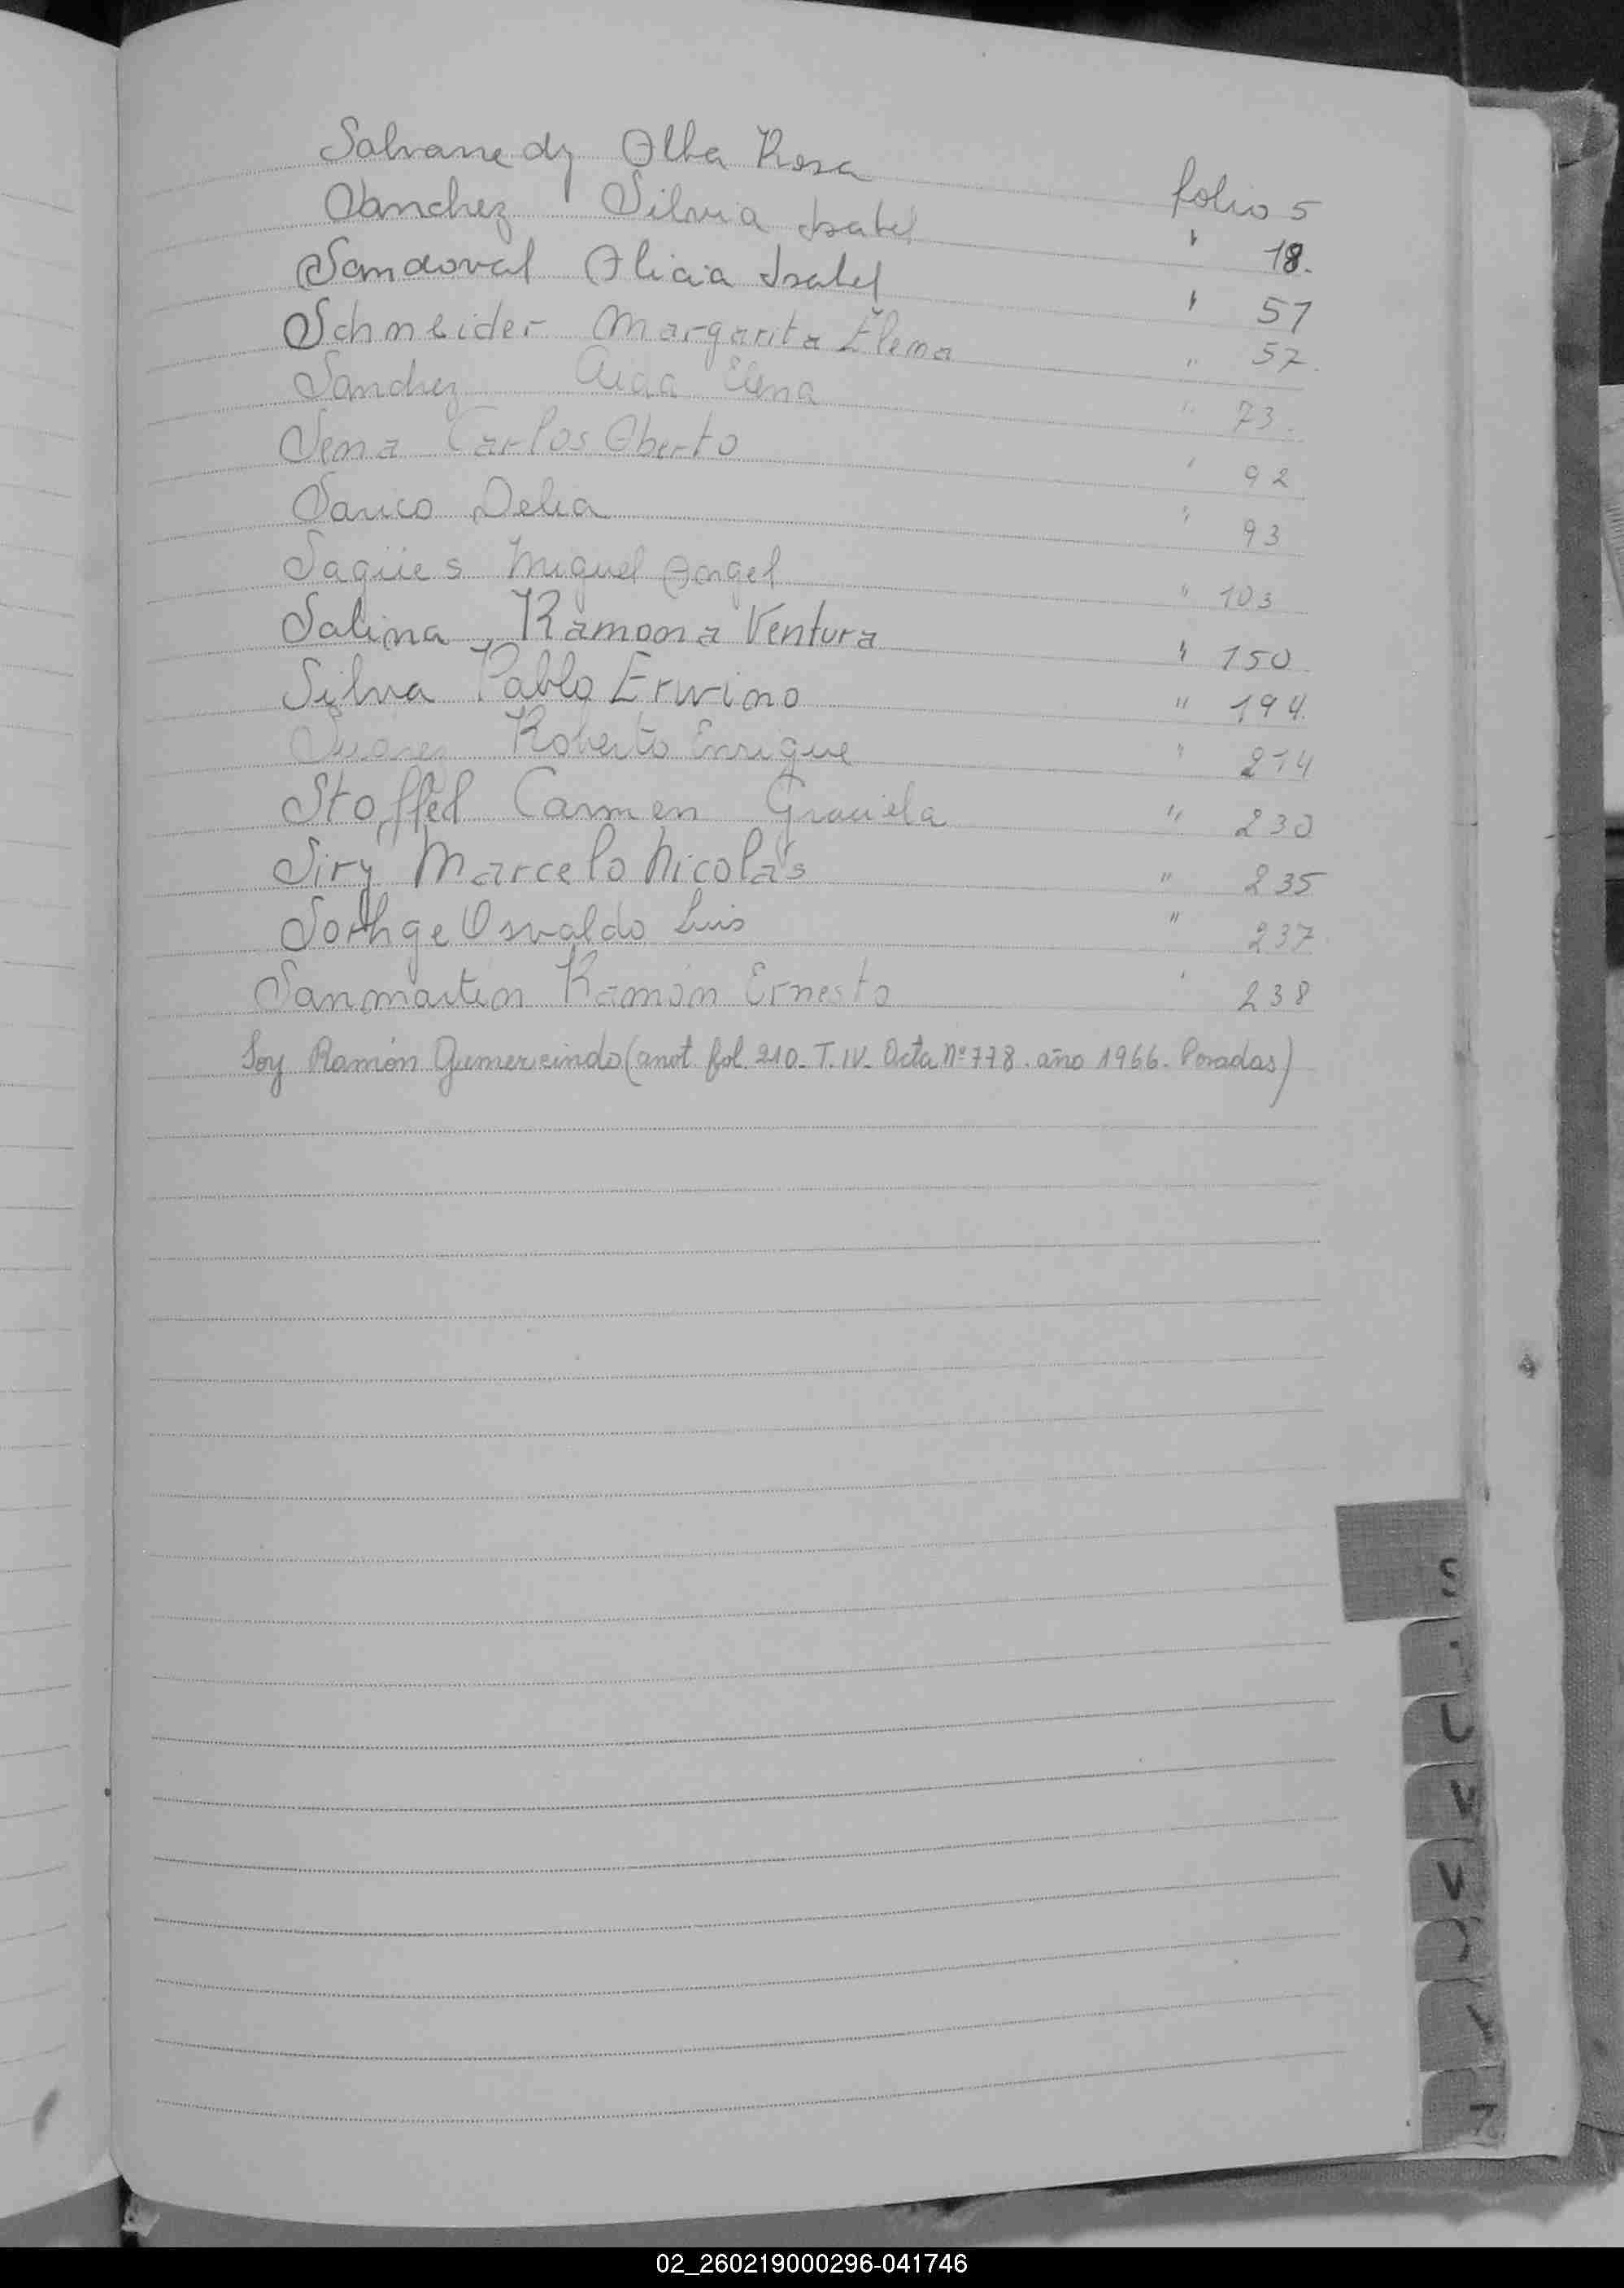 Salvanedy Alba Rosa folio 5
Sanchez Silvia Isabel " 18.
Sandoval Alicia Isabel " 51
Schneider Margarita Elena " 57.
Sanchez Aida Elena " 73.
Sena Carlos Alberto " 92
Sauco Delia " 93
Sagües Miguel Angel " 103
Salina, Ramona Ventura " 150
Silva Pablo Erwino " 194.
Suarez Roberto Enrique " 214
Stoffel Carmen Graciela " 230
Siry Marcelo Nicolás " 235
Osvaldo Luis " 237
Sanmartin Ramón Ernesto " 238
Soy Ramón Gumercindo (anot. fol. 210. T. IV. Acta Nº 778. año 1966. Posadas)
S
V
Z
02_260219000296-041746